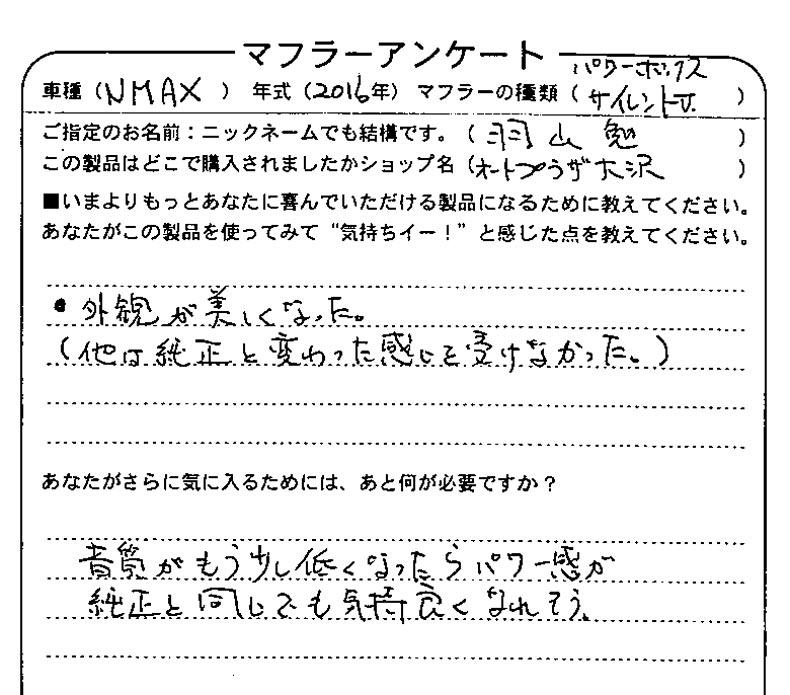 マフラーアンケート
車種（NMAX）年式（2016年）マフラーの種類（パワーボックス
サイレントV.）
ご指定のお名前：ニックネームでも結構です。（羽山 勉）
この製品はどこで購入されましたかショップ名（オートプラザ大沢）
■いまよりもっとあなたに喜んでいただける製品になるために教えてください。
あなたがこの製品を使ってみて“気持ちイー！”と感じた点を教えてください。
• 外観が美しくなった。
（他は純正と変わった感じを受けなかった。）
あなたがさらに気に入るためには、あと何が必要ですか？
音質がもう少し低くなったらパワー感が
純正と同じでも気持良くなれそう。